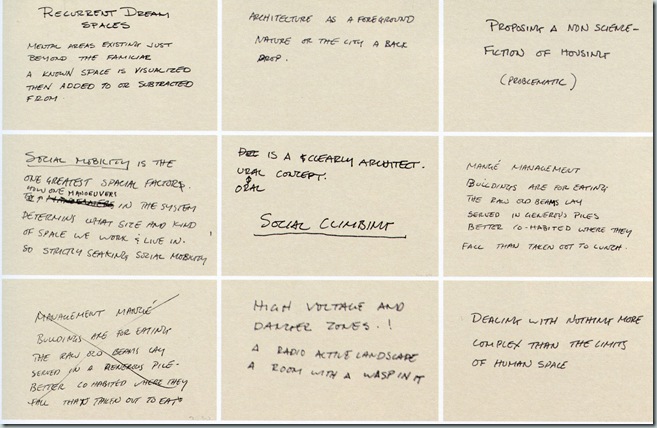 RECURRENT DREAM
SPACES
MENTAL AREAS EXISTING JUST
BEYOND THE FAMILIAR
A KNOWN SPACE IS VISUALIZED
THEN ADDED TO OR SUBTRACTED
FROM.
ARCHITECTURE AS A FOREGROUND
NATURE OR THE CITY A BACK
DROP.
PROPOSING A NON SCIENCE-
FICTION OF HOUSING
(PROBLEMATIC)
SOCIAL MOBILITY IS THE
ONE GREATEST SPACIAL FACTOR.
HOW ONE MANOEUVERS
IN THE SYSTEM
DETERMINS WHAT SIZE AND KIND
OF SPACE WE WORK & LIVE IN.
SO STRICTLY SEAKING SOCIAL MOBILITY
IS A CLEARLY ARCHITECT.
URAL CONCEPT.
ORAL
SOCIAL CLIMBING
MANGÉ MANAGEMENT
BUILDINGS ARE FOR EATING
THE RAW OLD BEAMS LAY
SERVED IN GENEROUS PILES
BETTER CO-HABITED WHERE THEY
FALL THAN TAKEN OUT TO LUNCH.
MANAGEMENT MANGÉ
BUILDINGS ARE FOR EATING
THE RAW OLD BEAMS LAY
SERVED IN A GENEROUS PILE.
BETTER CO-HABITED WHERE THEY
FALL THAN TAKEN OUT TO EAT
HIGH VOLTAGE AND
DANGER ZONES.!
A RADIO ACTIVE LANDSCAPE
A ROOM WITH A WASP IN IT
DEALING WITH NOTHING MORE
COMPLEX THAN THE LIMITS
OF HUMAN SPACE